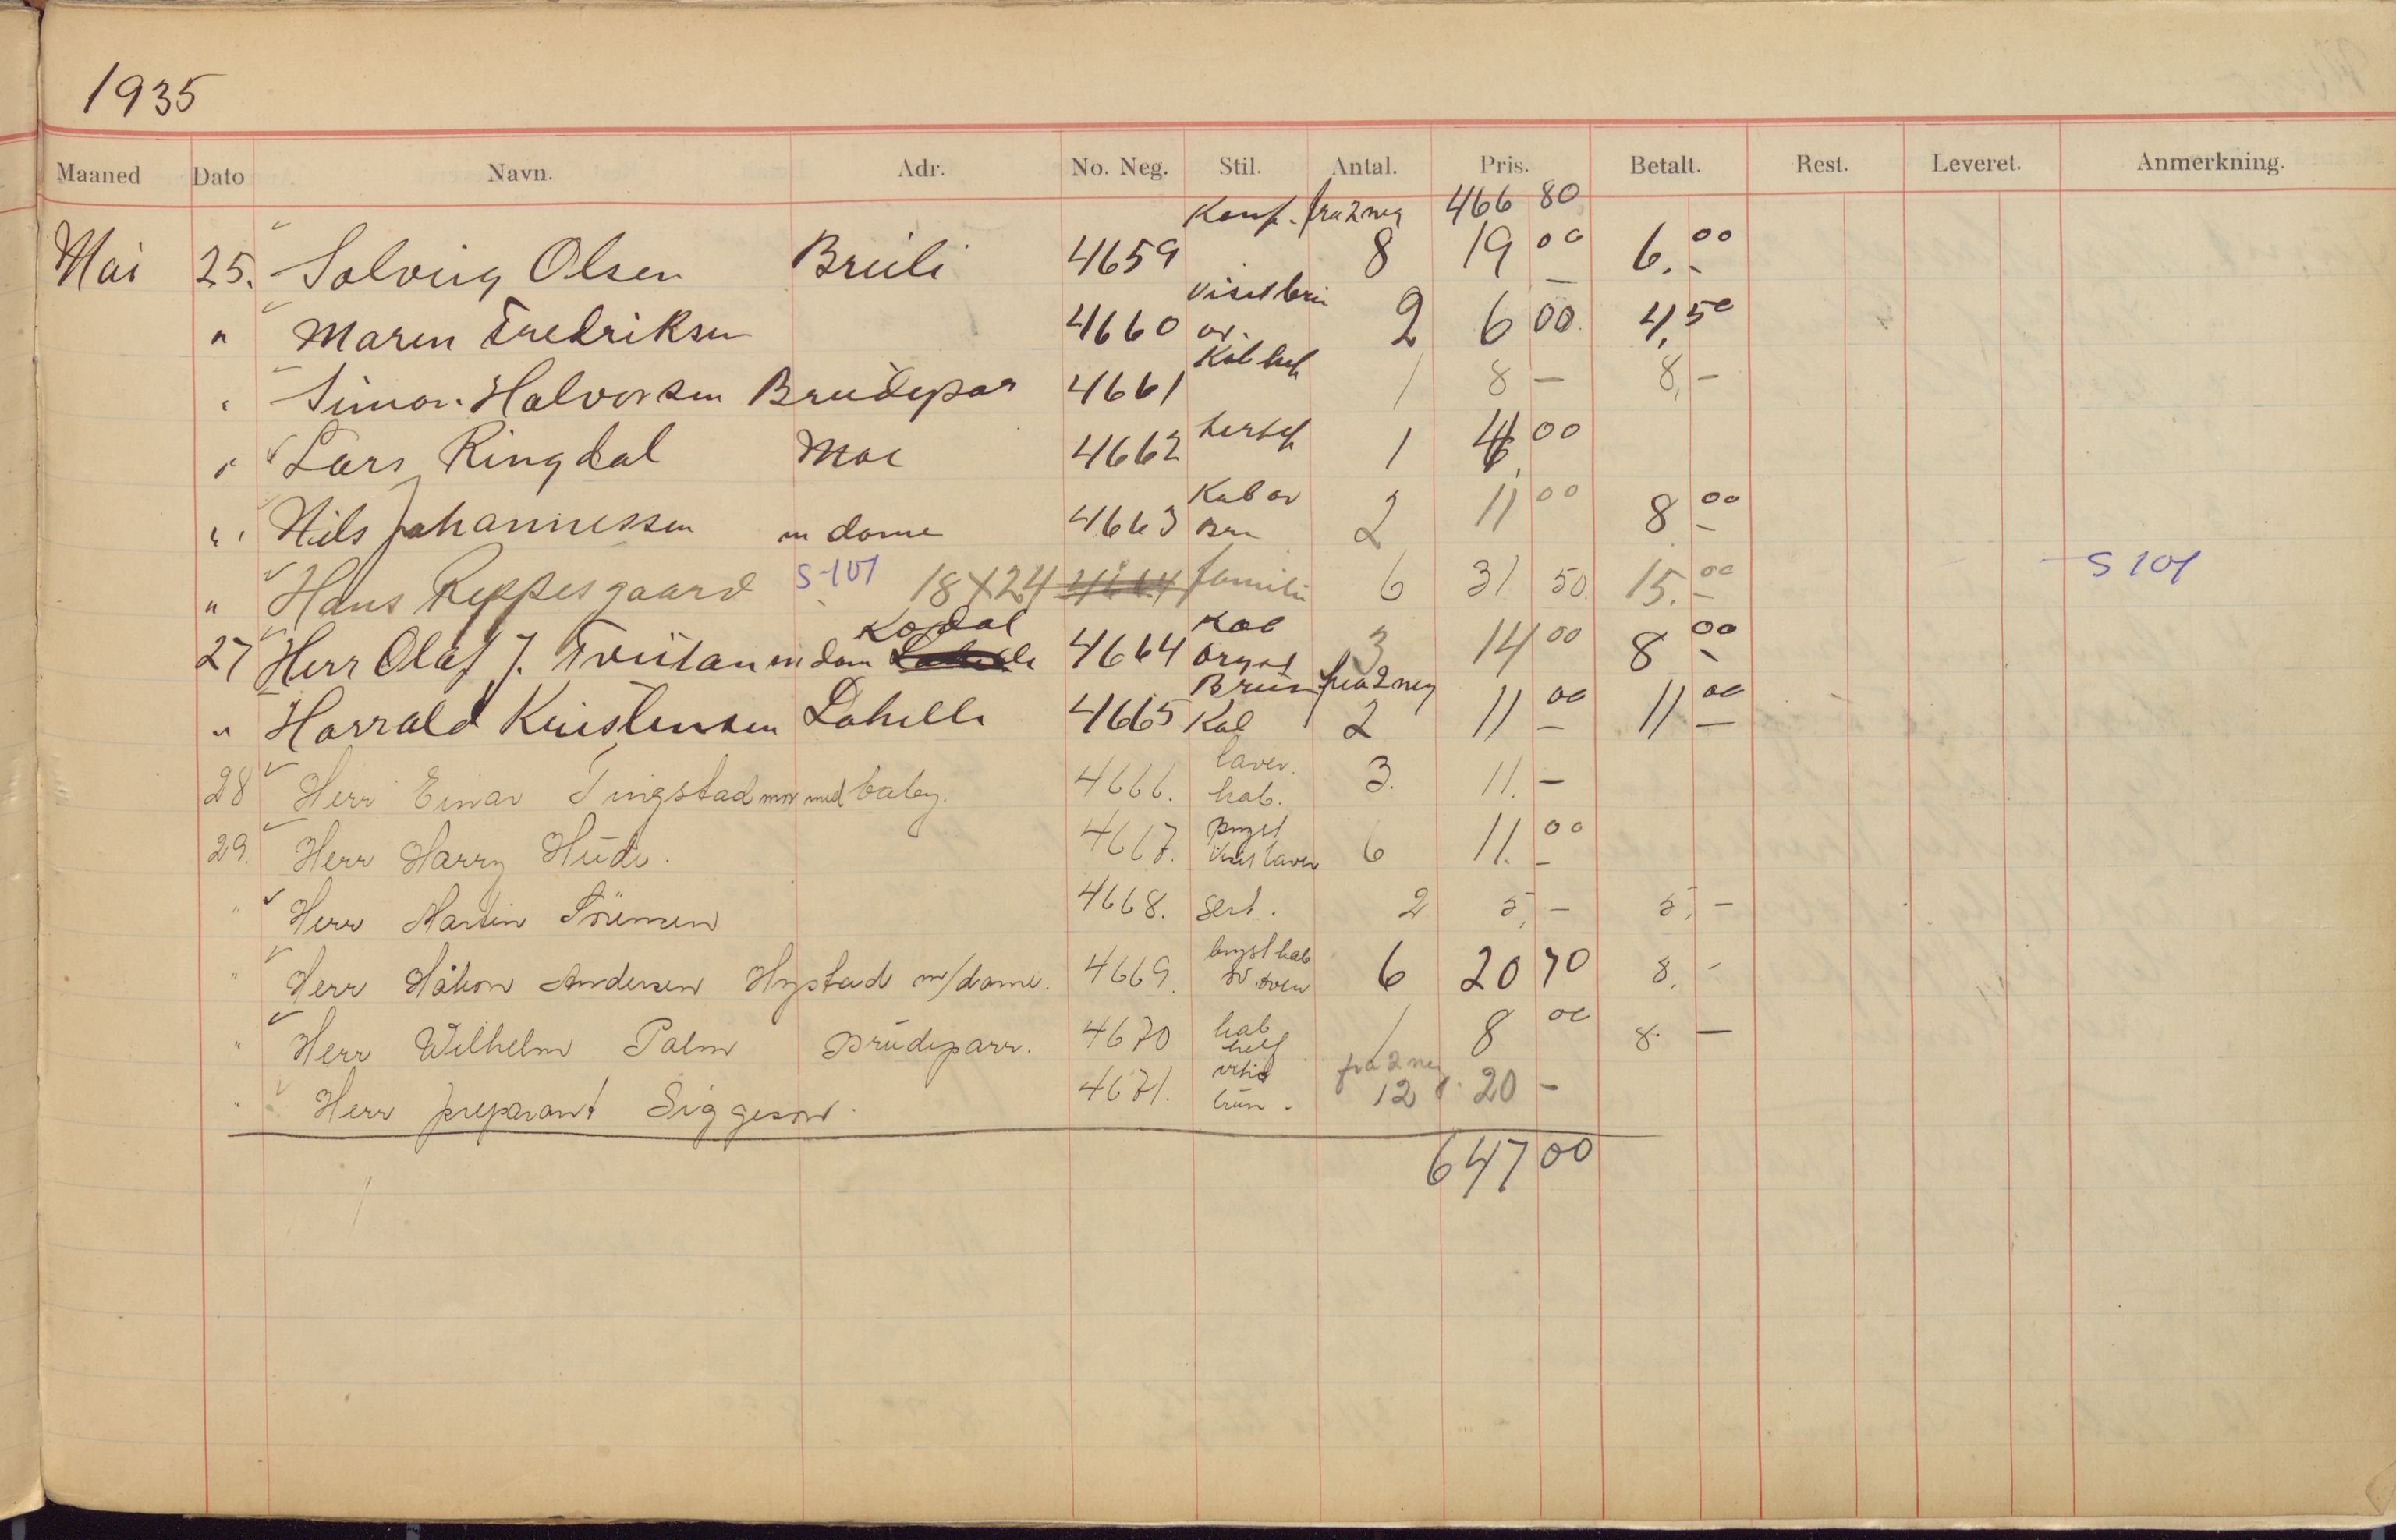 1935
Maaned Dato Navn. Adr. No. Neg. Stil. Antal. Pris. Betalt. Rest. Leveret. Anmerkning.
466 80
Mai 25. Solveig Olsen 4659 Konf. fra 2 neg 8 19 00 6.00
" Maren Fredriksen 4660 Visit 2 6 00 4,50
" Simon Halvorsen Brudepar 4661 Kab 1 8 – 8,–
" Lars Ringdal Moe 4662 1 4,00
" Nils Johannessen m dame 4663 Kab 2 11 00 8 00
" Hans Reppesgaard S-101 18X24 4664 familie 6 31 50. 15.00 S 101
27 Herr Olaf J. m dam Kodal 4664 Kab 3 14 00 8 00
" Harrald Kristensen Lahelle 4665 Brun Kab fra 2 neg 2 11 00 11 00
28 Herr Einar Tingstad mor med baby. 4666. kab. 3. 11. –
29. Herr Harry 4667. 6 11. 00
" Herr Martin 4668. Sert. 2 5, – 5, –
" Herr Håkon Andersen Hystad m/dame. 4669. bryst kab 6 20 70 8. –
" Herr Wilhelm Palm Brudeparr. 4670 kab hel 1 8 00 8. –
" Herr preparant 4671. brun. fra 2 neg 12 20 –
647 00